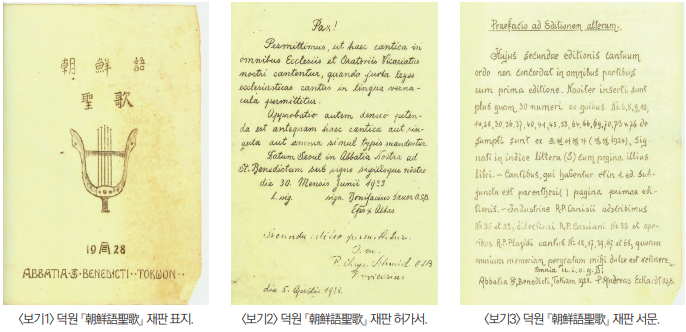 朝鮮語
聖歌
1928
ABBATIA S. BENEDICTI · TOKWON ·
〈보기1〉 덕원 『朝鮮語聖歌』 재판 표지.
Pax!
Permittimus, ut haec cantica in
omnibus Ecclesiis et Oratoriis Vicariatus
nostri cantentur, quando juxta leges
ecclesiasticas cantus in lingua verna-
cula permittitur.
Approbatio autem denuo peten-
da est antequam haec cantica aut sin-
gula aut omnia simul typis mandentur.
Datum Seoul in Abbatia Nostra ad
St. Benedictum sub signo sigilloque nostro
die 30. Mensis Junii 1923
L. sig. sign. Bonifacius Sauer O.S.B.
Eps & Abbas
Secunda editio permittitur.
P. Chrys. Schmid O.S.B
die 5. Aprilis 1928.
〈보기2〉 덕원 『朝鮮語聖歌』 재판 허가서.
Praefatio ad Editionem alteram.
Hujus secundae editionis cantuum
ordo non concordat in omnibus partibus
cum prima editione. Noviter inserti sunt
plus quam 30 numeri ex quibus № 6, 8, 9, 10,
14, 28, 30, 36, 37, 40, 41, 45, 53, 64, 66, 69, 70, 73 & 76 de
sumpti sunt ex 1924), Sig-
nati in indice littera (S) cum pagina illius
libri. – Cantibus, qui habentur et in 1. ed. sub-
juncta est parenthesi ( ) pagina primae edi-
tionis. – Industriae R.P. Canisii adscribimus
№ 35 et 52, dilectioni R.P. Cassiani № 33 et ope-
ribus R.P. Plazidi cantus № 12, 17, 39, 67 et 68, quorum
omnium memoriam pergratam mihi dulce est retinere.
Omnia u. i. o. g. D.!
Abbatia St. Benedicti, Tokwon 1928. P. Andreas Eckardt O.S.B.
〈보기3〉 덕원 『朝鮮語聖歌』 재판 서문.